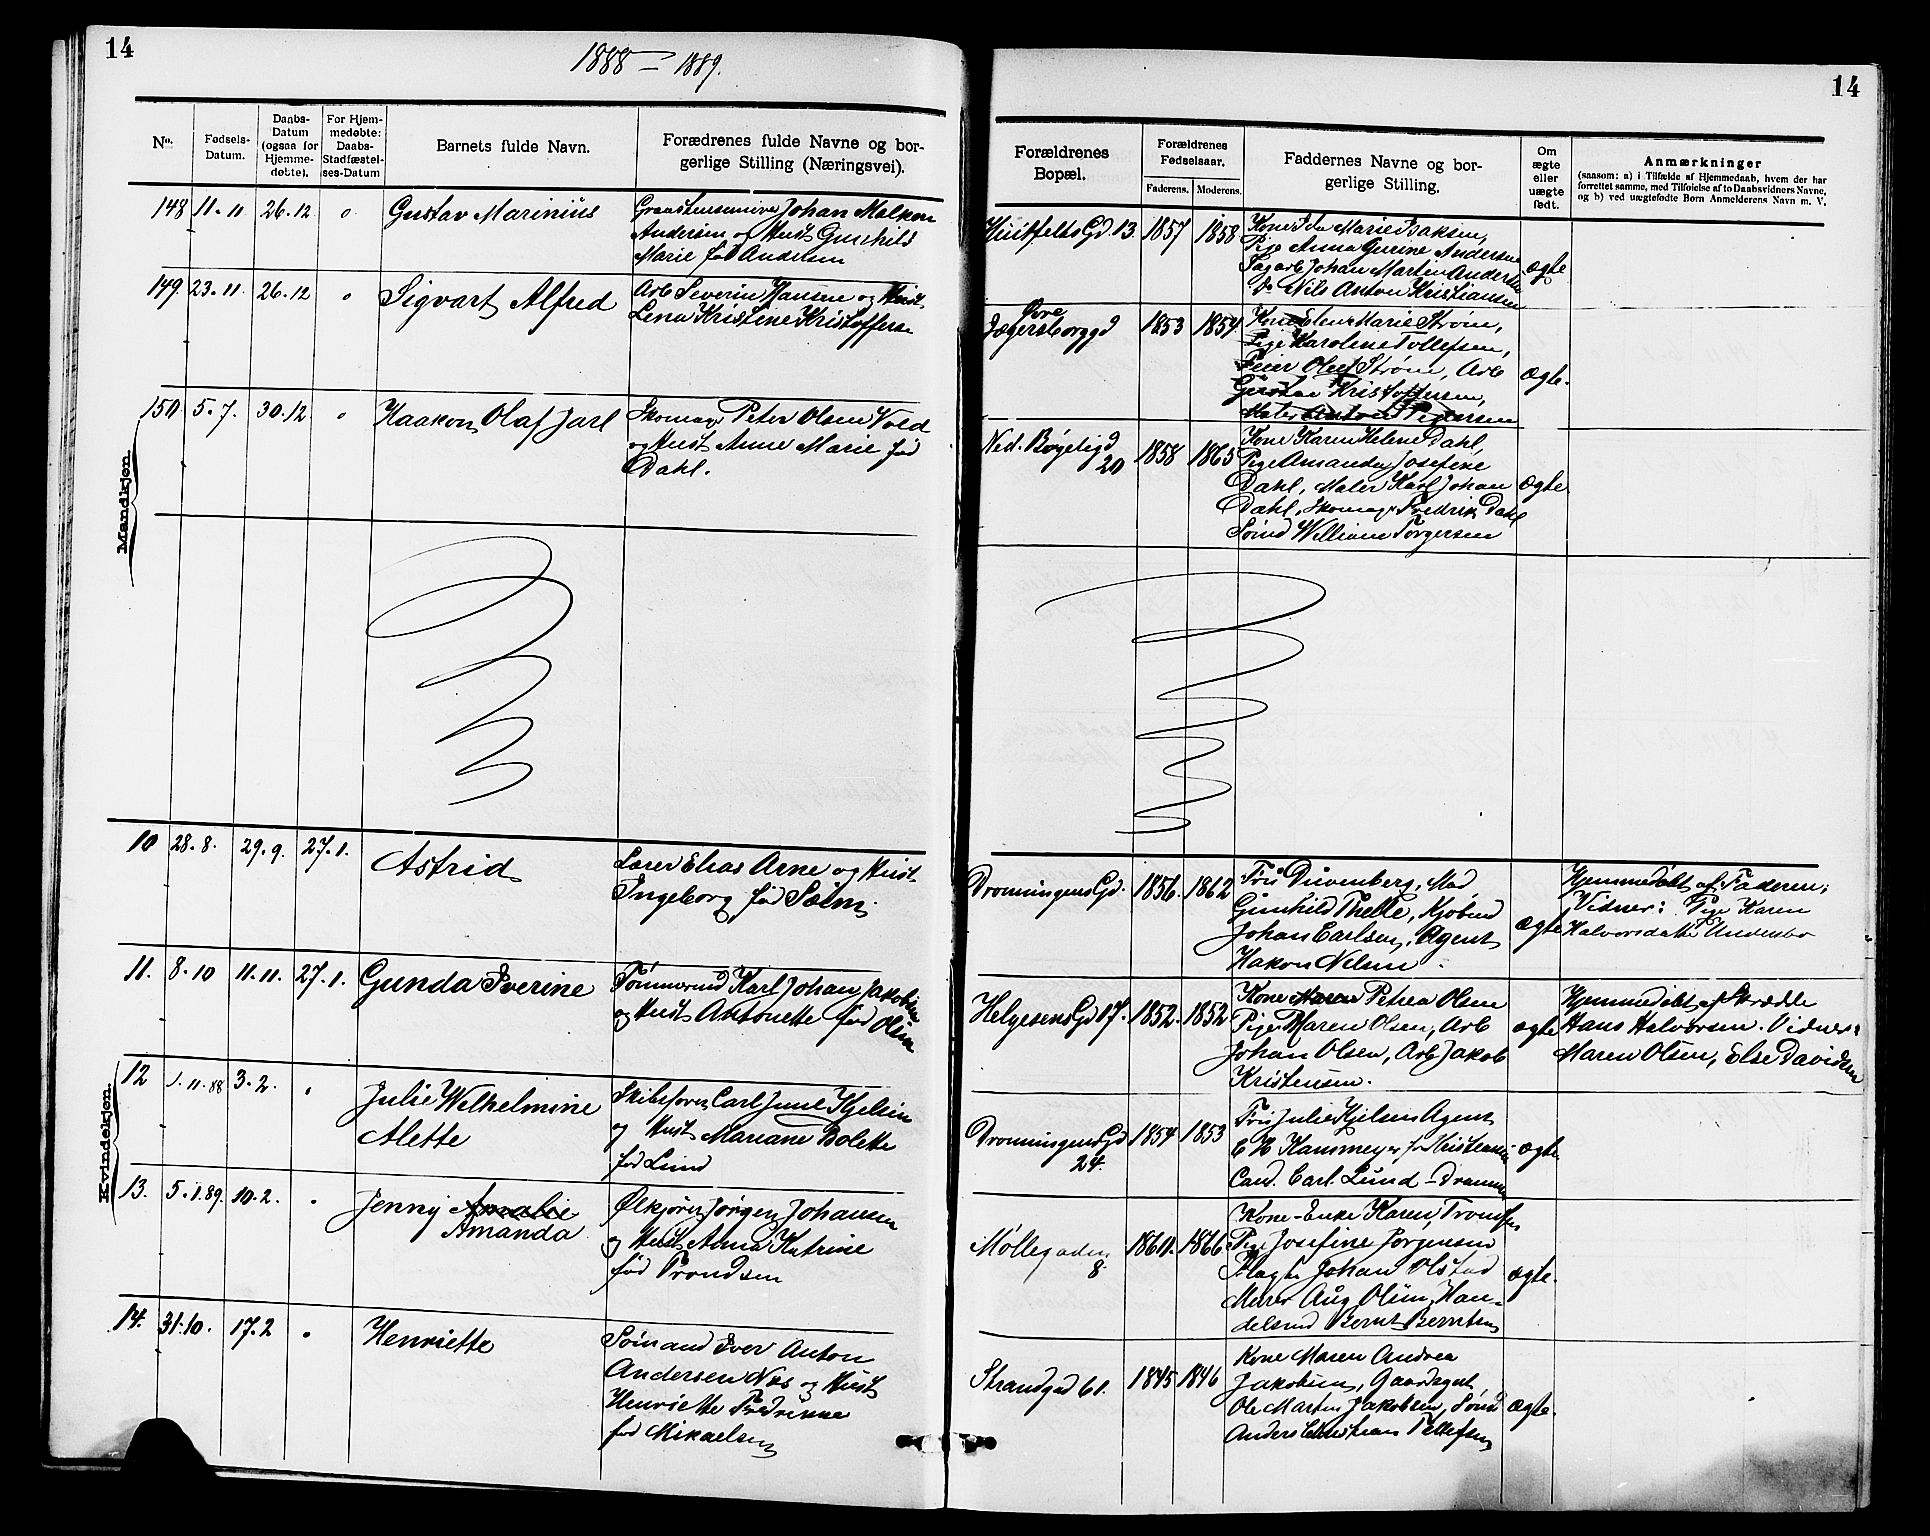 14
1888 – 1889.
14
No.
Fødsels-
Datum.
Daabs-
Datum
(ogsaa for
Hjemme-
døbte).
For Hjem-
medøbte:
Daabs-
Stadfæstel-
ses-Datum
Barnets fulde Navn.
Forædrenes fulde Navne og bor-
gerlige Stilling (Næringsvei).
Forældrenes
Bopæl.
Forældrenes
Fødselsaar.
Faderens.
Moderens.
Faddernes Navne og bor-
gerlige Stilling.
Om
ægte
eller
uægte
født.
Anmærkninger
(saasom: a) i Tilfælde af Hjemmedaab, hvem der har
forrettet samme, med Tilføielse af to Daabsvidners Navne,
og b) ved uægtefødte Børn Anmelderens Navn m. V.
148 11-11 26.12 0 Gustav Marinius
Johan
Andersen og Hust Gunhild
Marie fød Andersen
Huitfelts Gd. 13. 1857 1858
Kone Ida Marie Isaksen,
Pige Anna Andersen
Sagarb Johan Martin Andersen
Do Nils Anton Kristiansen
ægte
149. 23.11. 26.12 0 Sigvart Alfred
Arb Severin Hansen og Hust
Lena Kristine Kristoffersen
Øvre
Jægersborggd 1853 1854
Kone Elen Marie Strøm,
Pige Karoline Tollefsen,
Feier Oluf Strøm, Arb
Gustav Kristoffersen,
Maler Anton Pedersen
ægte.
Mandkjøn
150 5.7. 30.12. 0 Haakon Olaf Jarl
Skomag. Peter Olsen Vold
og Hust Anne Marie fød
Dahl.
Ned. Bøgeligd
20 1858 1865
Kone Karen Helene Dahl,
Pige Amanda Josefine
Dahl, Maler Karl Johan
Dahl, Skomag. Fredrik Dahl
Sømd William Torgersen
Ægte
10 28.8. 29.9. 27.1. Astrid
Lærer Elias Arne og Hust
Ingeborg fød Sælm.
Dronningens Gd. 1856. 1862
Frü Düvenberg, Mad
Gunhild Thelle, Kjøbmd
Johan Carlsen, Agent
Hakon Nilsen.
ægte
Hjemmedøbt af Faderen;
Vidner: Pige Karen
Halvorsdatter
11. 8.10 11.11. 27.1. Gunda Iverine
Tømmermd Karl Johan Jakobsen
og Hust Antonette fød Olsen
Helgesens Gd 17. 1852. 1852
Kone Maren Petrea Olsen
Pige Maren Olsen, Arb
Johan Olsen, Arb Jakob
Kristensen.
ægte
Hjemmedøbt af Skrædder
Hans Halvorsen. Vidner:
Maren Olsen, Else Davidsen
Kvindekjøn
12 1.11.88 3.2. " Julie Wilhelmine
Alette
Skibsfører Carl Juul Kjelsen
og Hust Mariane Bolette
fød Lund
Dronningens Gd
24. 1854 1853
Frü Julie Kjelsen Agent
Cand. Carl Lund – Drammen
ægte
13. 5.1.89. 10.2. " Jenny Amalie
Amanda
Ølkjører Jørgen Johansen
og Hust Anna Katrine
fød Trondsen
Møllegaden
8. 1860. 1866
Kone-Enke Karen Trondsen
Pige Josefine Jørgensen
Johan Olstad
Murer Aug Olsen, Han-
delsmd Bernt Berntsen
ægte.
14. 31.10. 17.2 " Henriette
Sømand Iver Anton
Andersen Næs og Hust
Henriette Fredrikke
fød Mikaelsen
Strandgad 61. 1845 1846
Kone Maren Andrea
Jakobsen, Gaardsgut
Ole Martin Jakobsen, Sømd
Anders Christian Tellefsen
ægte.